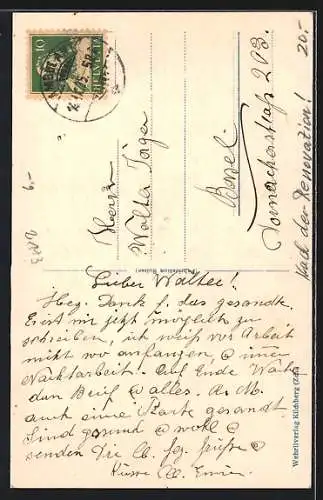 10
HELVETIA
Herrn
Walter Jäger
Basel.
Dornacherstraße 203.
Nach der Renovation! 20.-
Lieber Walter!
Hzg. Dank f. das gesandte.
Erst mir jetzt möglich zu
schreiben, ich weiß vor Arbeit
nicht wo anfangen
Nachtarbeit. Auf Ende Woche
dann Brief & alles.
auch eine Karte gesandt
Sind gesund & wohl &
senden Dir
Grüße &
Küsse
Wehrliverlag Kilchberg (Zch.)